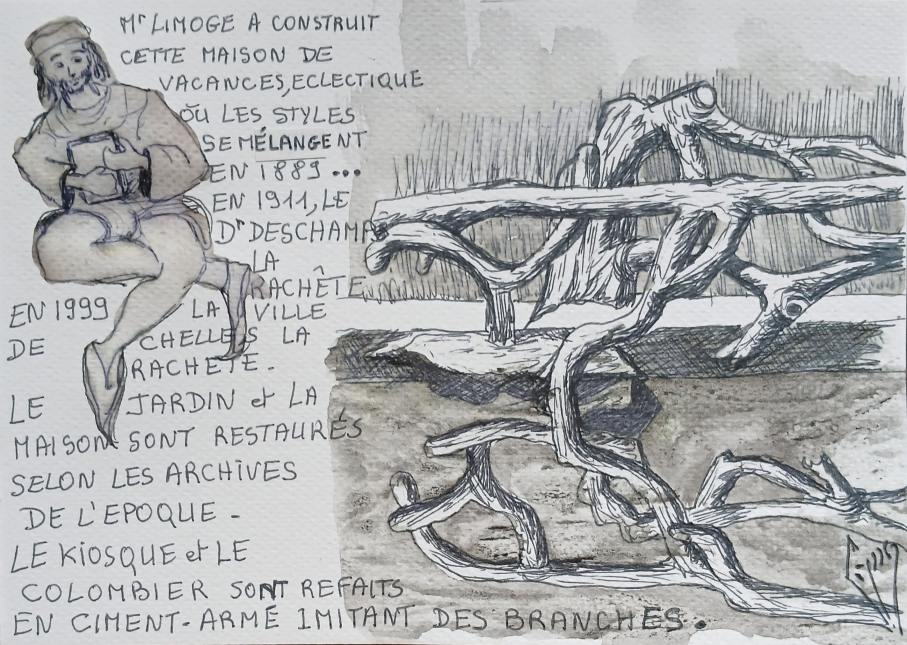 Mr LIMOGE A CONSTRUIT
CETTE MAISON DE
VACANCES, ECLECTIQUE
OÙ LES STYLES
SE MÉLANGENT
EN 1889...
EN 1911, LE
Dr DESCHAMPS
LA
RACHÊTE
EN 1999 LA VILLE
DE CHELLES LA
RACHETE.
LE JARDIN et LA
MAISON SONT RESTAURÉS
SELON LES ARCHIVES
DE L'EPOQUE -
LE KiOSQUE et LE
COLOMBIER SONT REFAITS
EN CIMENT-ARMÉ IMITANT DES BRANCHES.